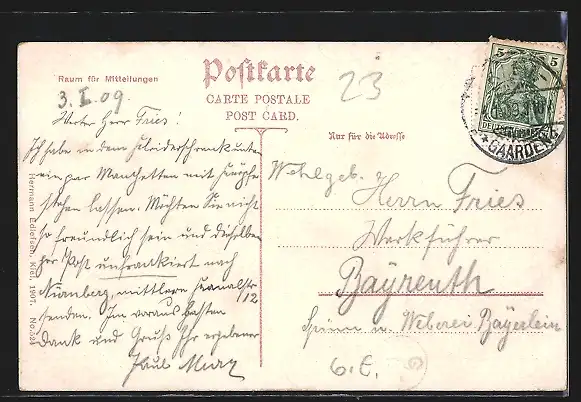 Raum für Mitteilungen
Postkarte
CARTE POSTALE
POST CARD.
Nur für die Adresse
23
5 5
GAARDEN
3. I. 09.
Werter Herr Fries!
Ich habe in dem Kleiderschrank unten
ein par Manchetten mit Knöpfe
stehen lassen. Möchten Sie nicht
so freundlich sein und dieselben
per Post unfrankiert nach
Nürnberg, mittlere Kanalstr
12
senden. Im voraus besten
Dank und Gruß Ihr ergebener
Paul
Wohlgeb.
Herrn Fries
Werkführer
Bayreuth
Spinn u. Weberei Bayerlein
Hermann Edlefsen, Kiel, 1907. No.